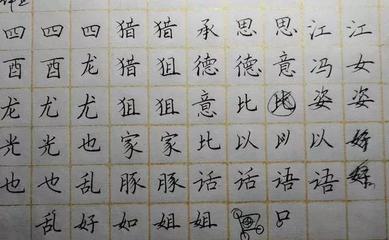 四四四猎猎承思思江江
酉酉龙猎狙德德意冯女
龙尤尤狙狙意比比姿姿
光光也家家比以以以好
也也乱豚豚话话语语好
乱好如姐姐口